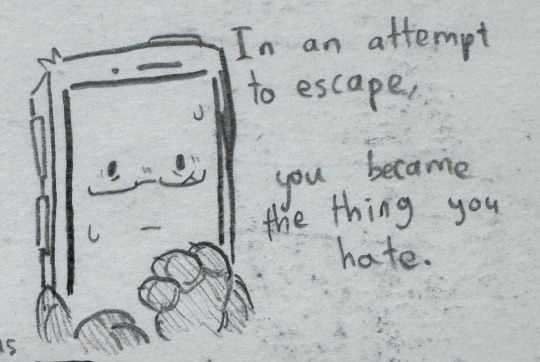 In an attempt
to escape,
you became
the thing you
hate.